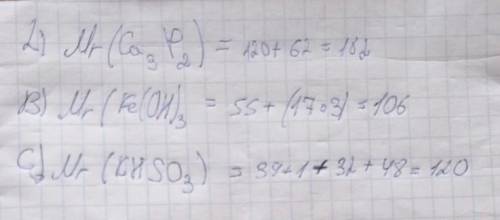 A) Mr (Ca₃P₂) = 120+62=182
B) Mr (Fe(OH)₃ = 55+(17∘3)=106
C) Mr (KHSO₃) = 39+1+32+48=120